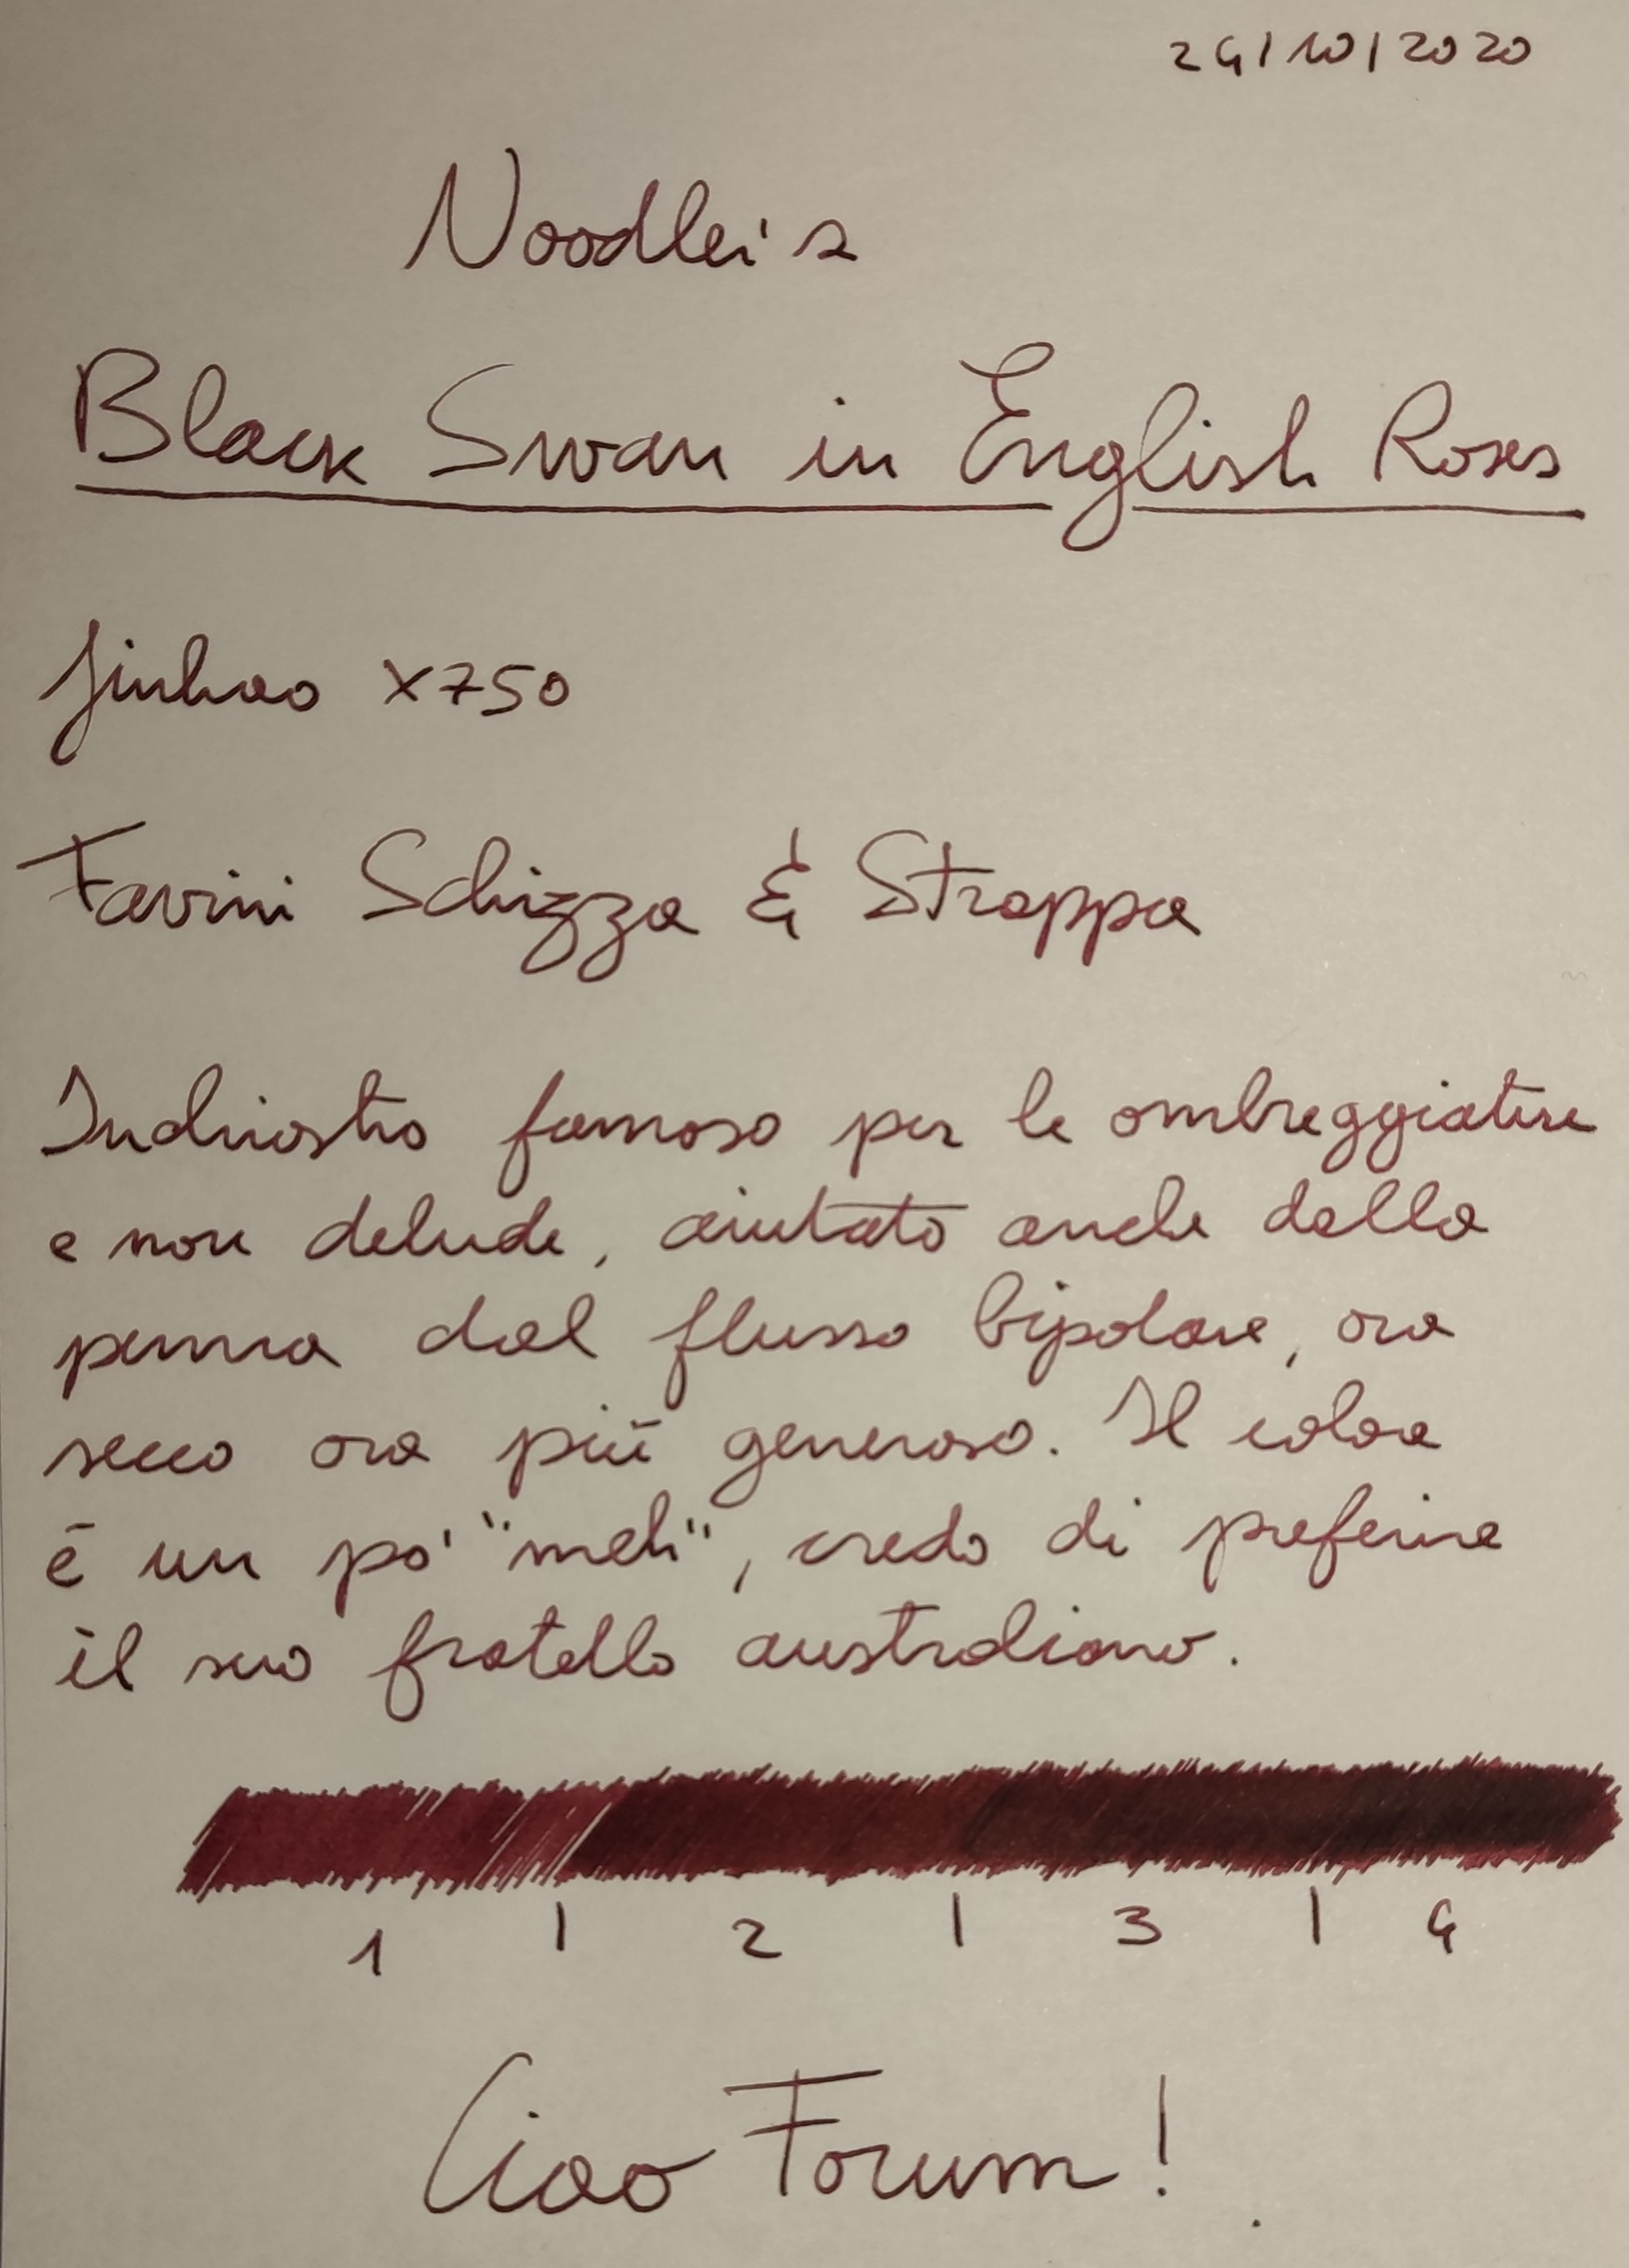 24/10/2020
Noodler's
Black Swan in English Roses
Jinhao X750
Favini Schizza & Strappa
Inchiostro famoso per le ombreggiature
e non delude, aiutato anche dalla
penna dal flusso bipolare, ora
secco ora più generoso. Il colore
è un po' "meh", credo di preferire
il suo fratello australiano.
1 | 2 | 3 | 4
Ciao Forum!